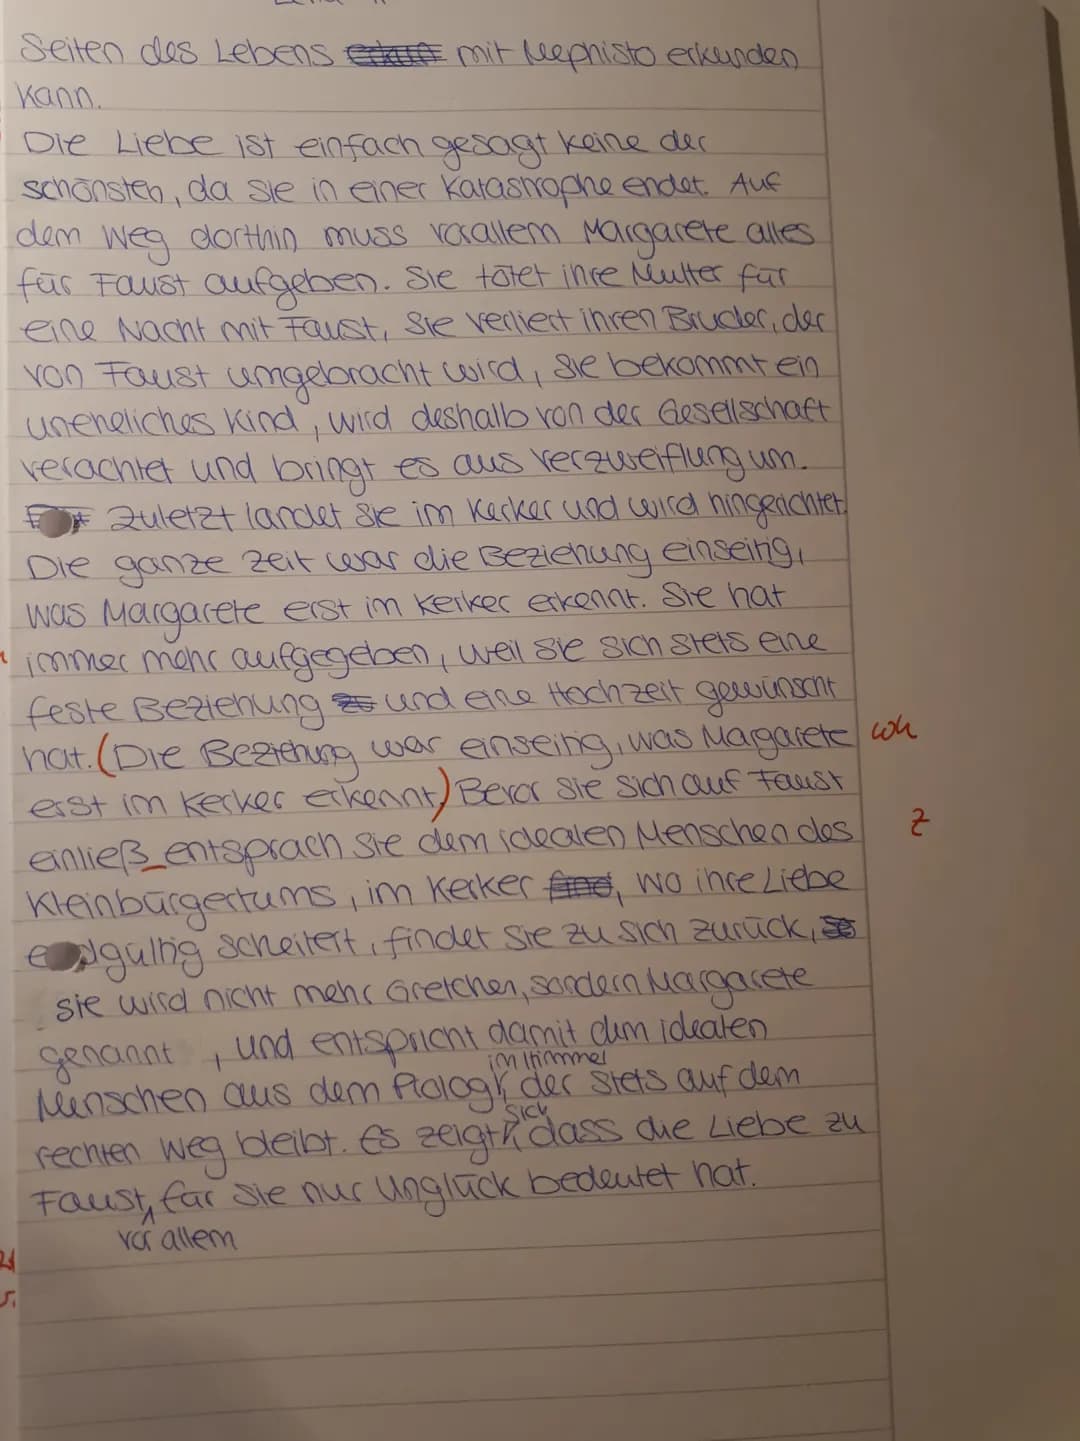 Seiten des Lebens mit Mephisto erkunden
kann.
Die Liebe ist einfach gesagt keine der
schönsten, da sie in einer Katastrophe endet. Auf
dem Weg dorthin muss vorallem Margarete alles
für Faust aufgeben. Sie tötet ihre Mutter für
eine Nacht mit Faust, sie verliert ihren Bruder, der
von Faust umgebracht wird, sie bekommt ein
uneheliches Kind, wird deshalb von der Gesellschaft
verachtet und bringt es aus Verzweiflung um.
Zuletzt landet sie im Kerker und wird hingerichtet.
Die ganze Zeit war die Beziehung einseitig,
was Margarete erst im Kerker erkennt. Sie hat
immer mehr aufgegeben, weil sie sich stets eine
feste Beziehung und eine Hochzeit gewünscht
hat. (Die Beziehung war einseitig, was Magarete Wh
erst im Kerker erkennt.) Bevor sie sich auf Faust
einließ entsprach sie dem idealen Menschen des Z
Kleinbürgertums, im Kerker, wo ihre Liebe
endgültig scheitert, findet sie zu sich zurück,
sie wird nicht mehr Gretchen, sondern Margarete
genannt, und entspricht damit dem idealen
im Himmel
Menschen aus dem Prolog, der stets auf dem
sich
rechten Weg bleibt. Es zeigt, dass die Liebe zu
Faust, für sie nur Unglück bedeutet hat.
vor allem